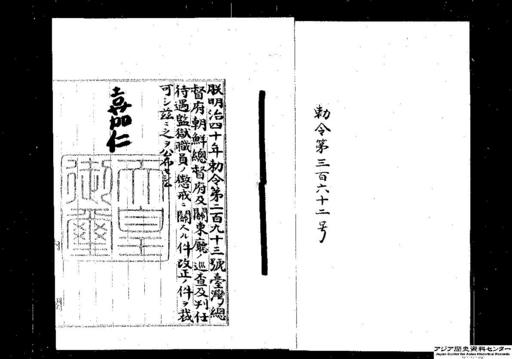 勅令第三百六十二号
朕明治四十年勅令第二百九十三號臺灣總
督府朝鮮總督府及關東廳ノ巡査及判任
待遇監獄職員ノ懲戒ニ關スル件改正ノ件ヲ裁
可シ茲ニ之ヲ公布セシム
嘉仁
天皇御璽
アジア歴史資料センター
Japan Center for Asian Historical Records